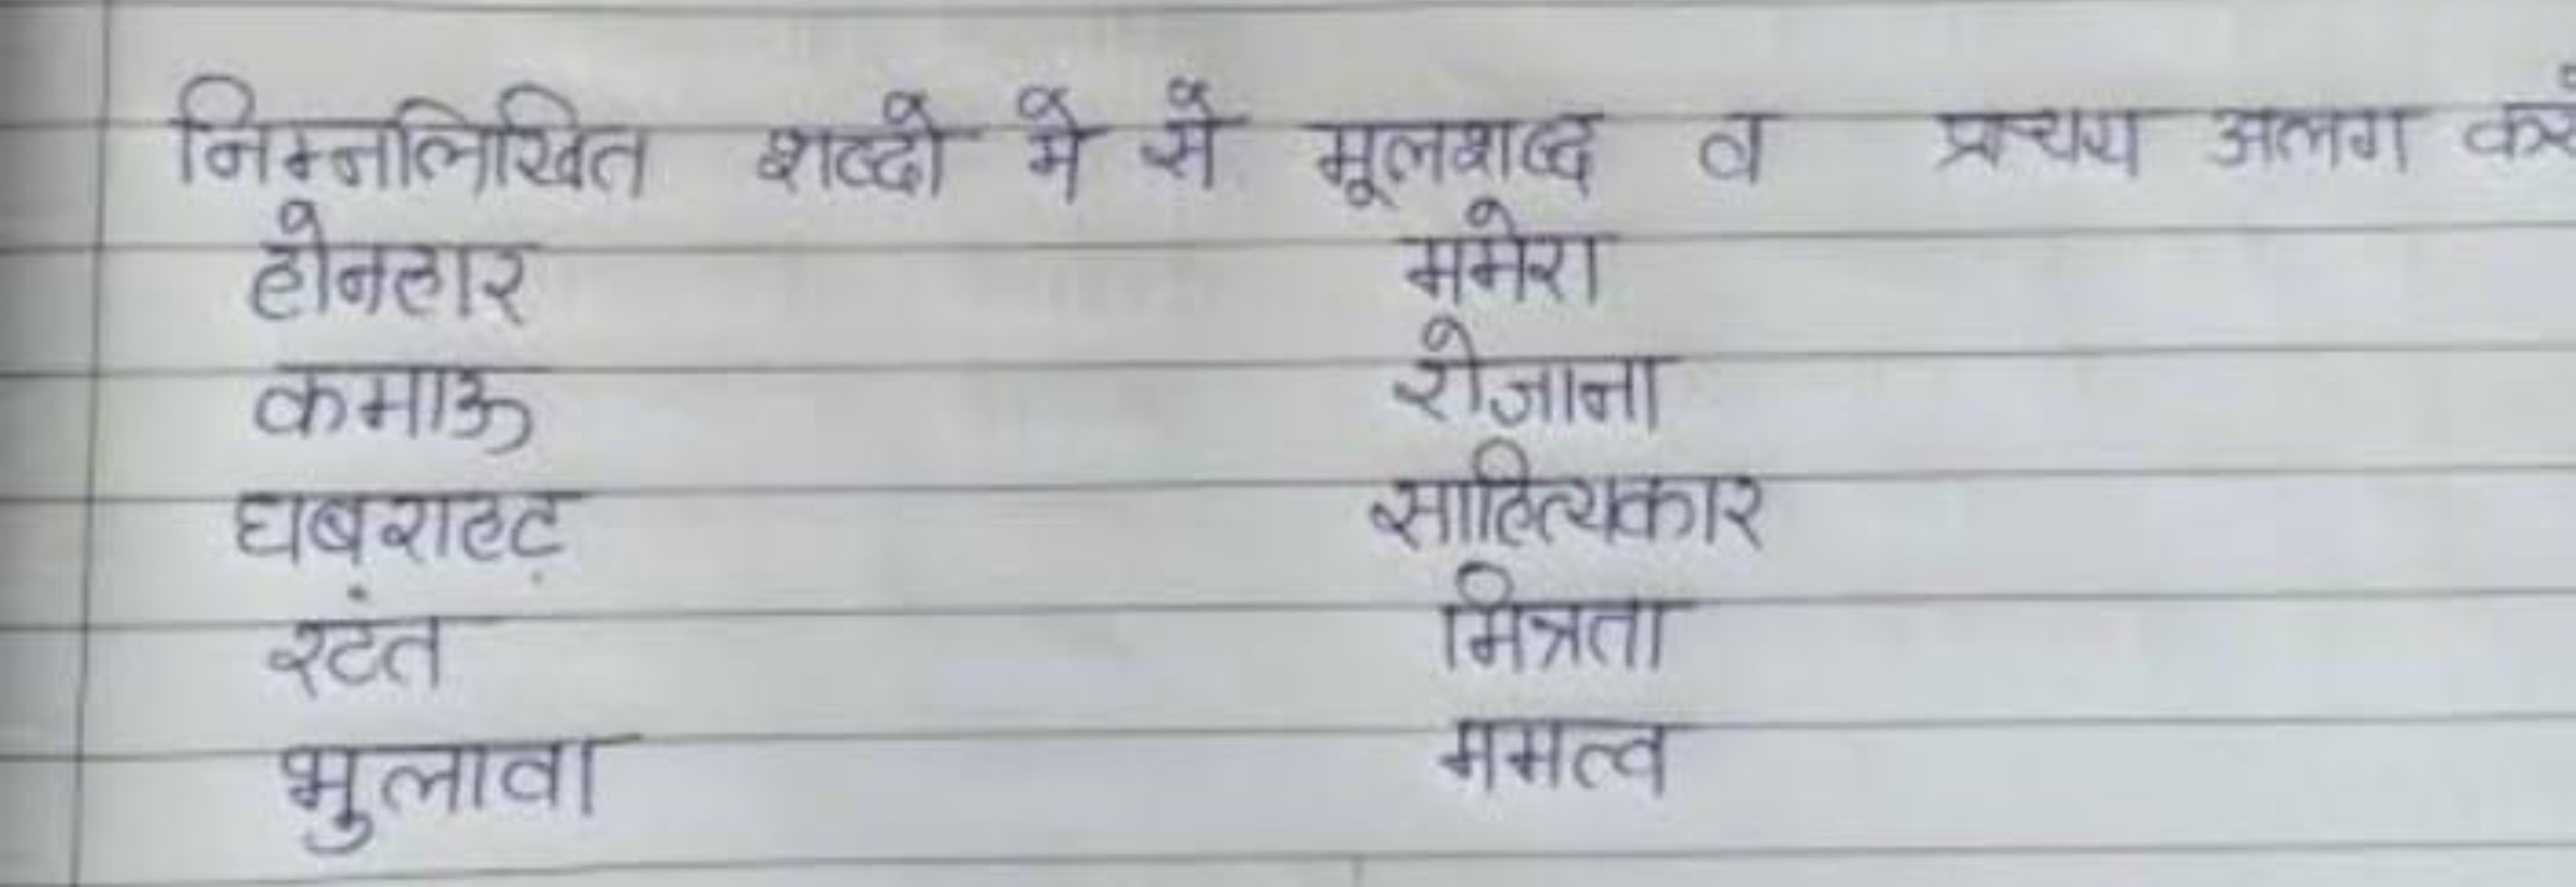 निम्नलिखित शब्दो मे से मूलशब्द व प्रत्यय अलग करे
होनहार ममेरा
कमाऊ रोजाना
घबराहट साहित्यकार
रटंत मित्रता
भुलावा ममत्व